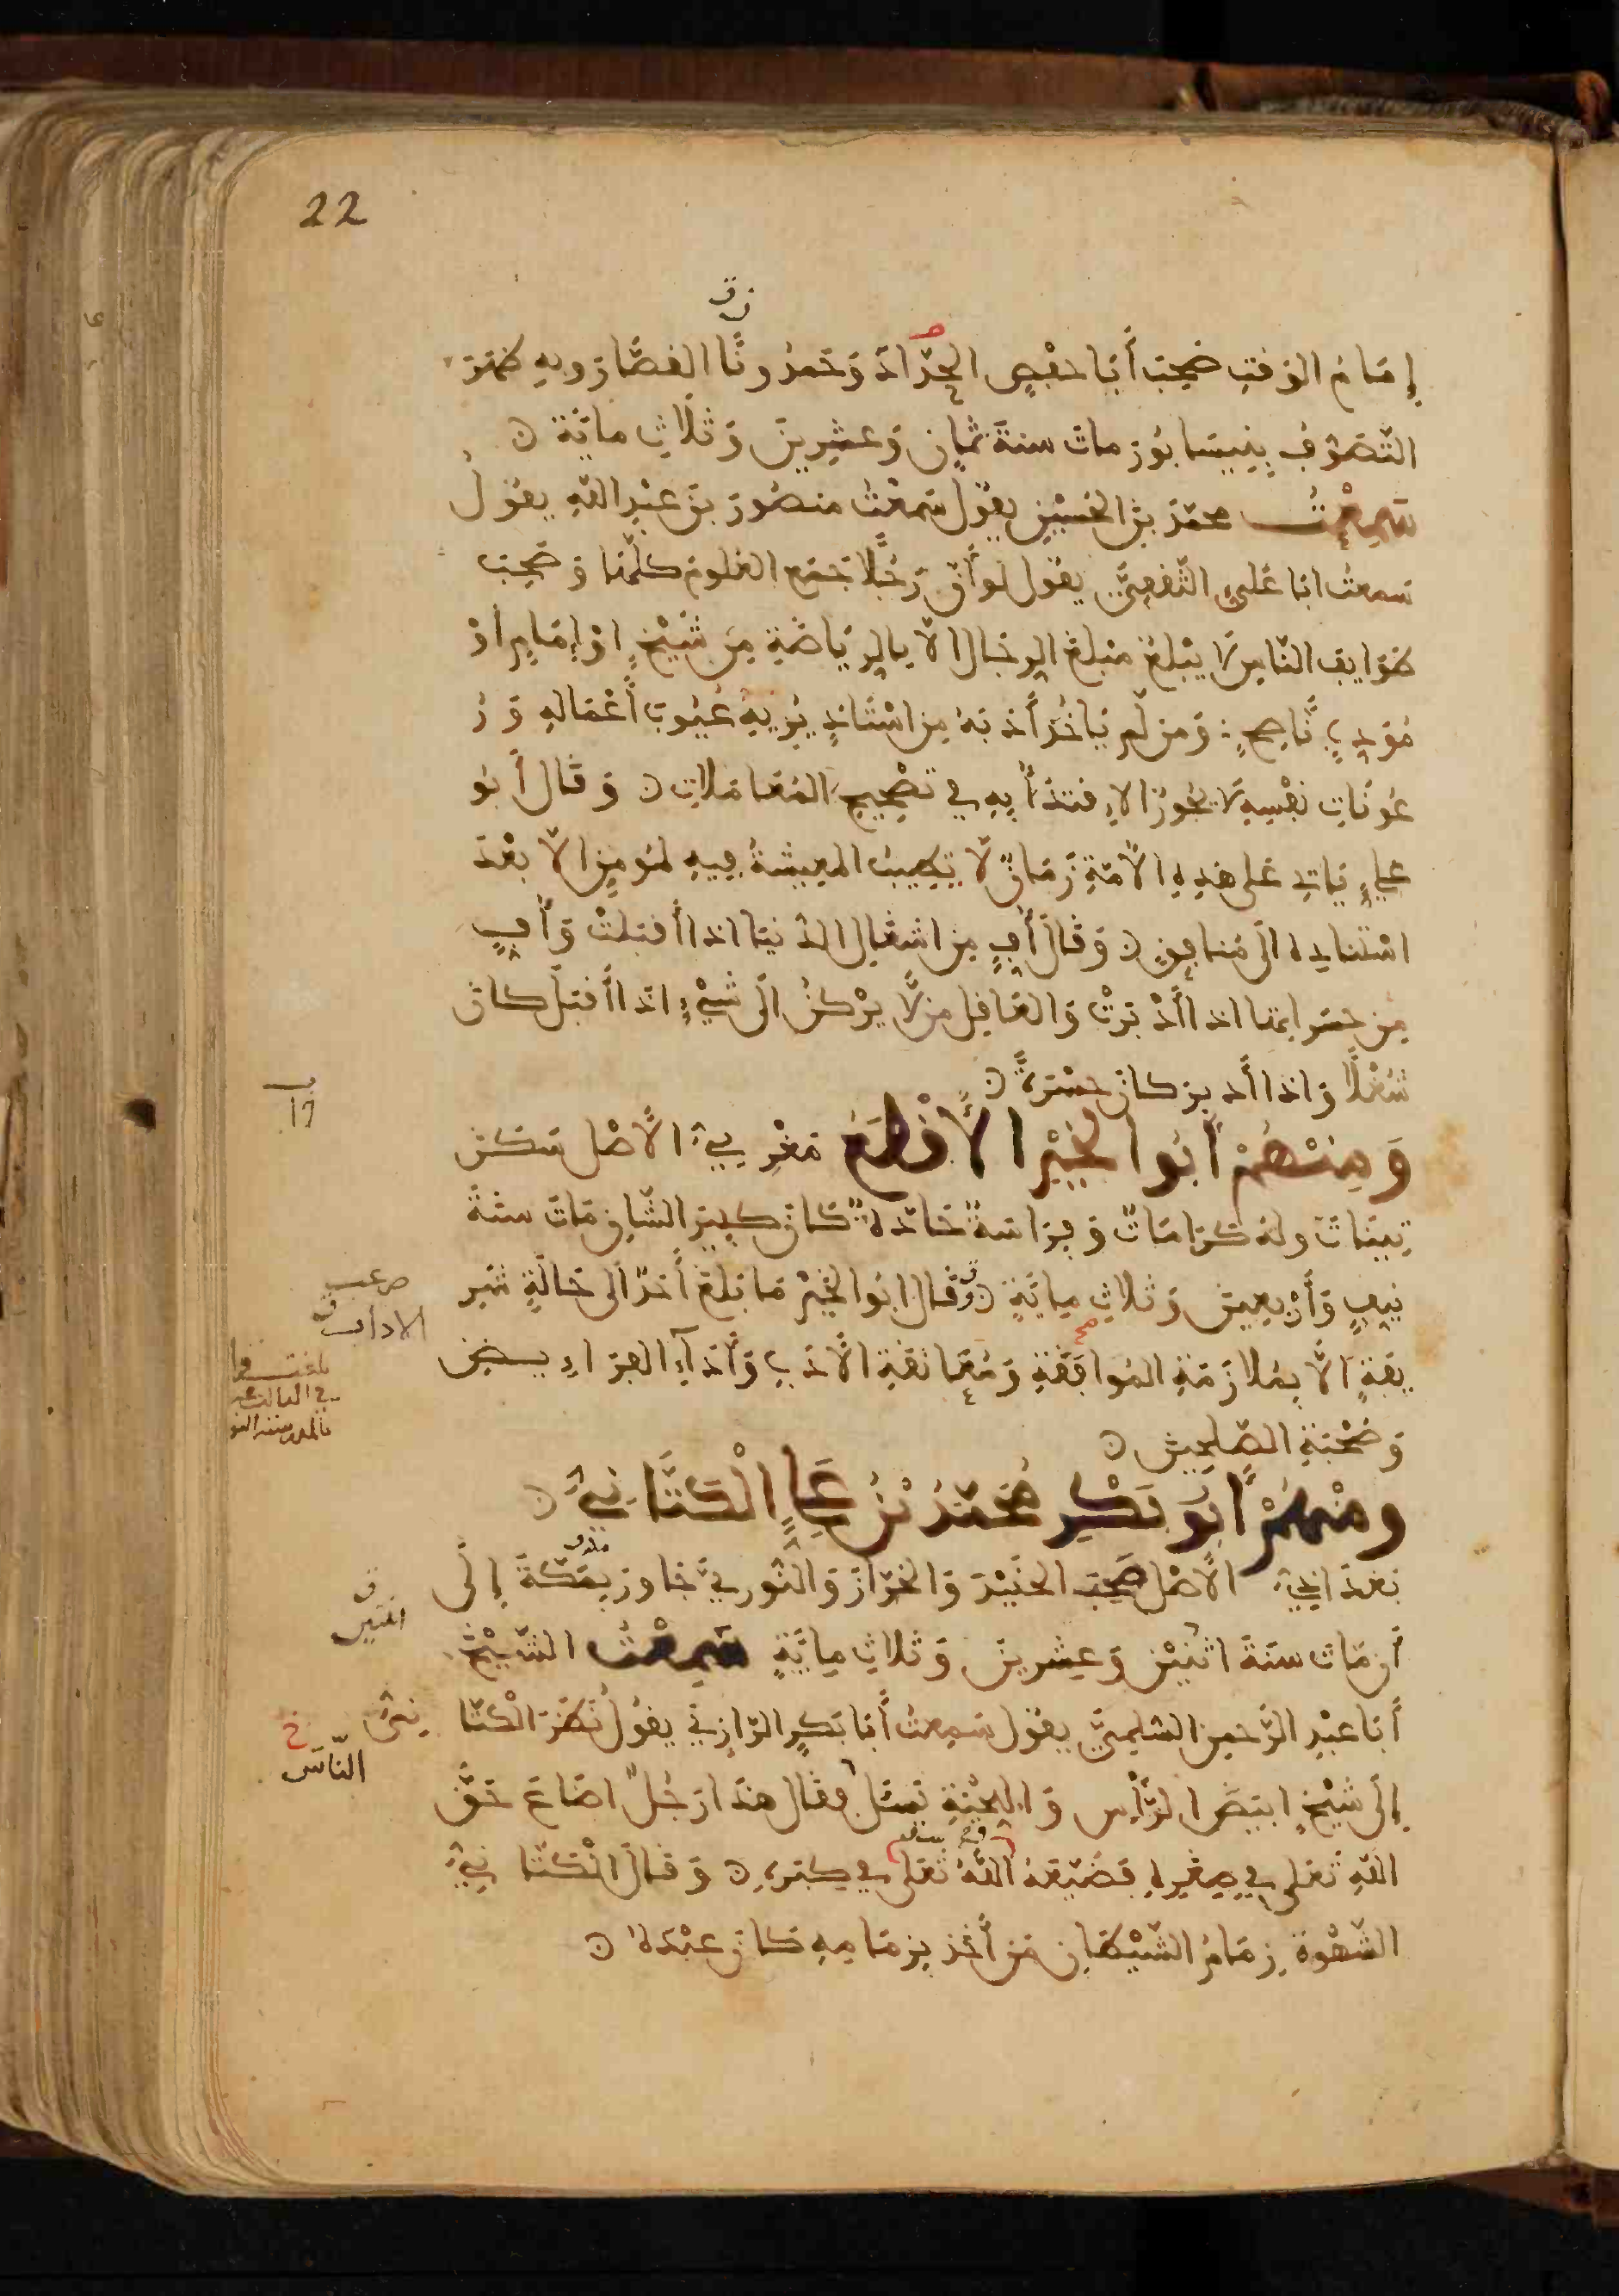 22
إمَامُ الوَقتِ صَحِبَ أَبَا حَفْصٍ الحَدَّادَ وَحَمْدُونًا القصَّارَ وبِهِ ظَهَرَ
التَّصَوُّفُ بِنِيسَابُورَ مات سنةَ ثَمَانٍ وَعشرِينَ وَثَلَاثِ مائَةٍ
سَمِعْتُ محمّدَ بنَ الحُسَيْنِ يقُولُ سَمِعْتُ منصُورَ بنَ عَبْدِ اللّهِ يقُولُ
سَمعتُ ابَا عَلِيٍّ الثَّقَفِيَّ يقُولُ لو أنَّ رَجُلًا جَمَعَ العُلومَ كلَّهَا وَصَحِبَ
طَوَايفَ النَّاسِ لَا يَبْلغُ مَبْلغَ الرِجَالِ الَّا بِالرِيَاضَةِ مِنْ شَيْخٍ اوْ إمَامٍ اوْ
مُؤَدِبٍ نَّاصِحٍ وَمَن لَّم يَاخُذْ أَدَبَهُ مِن اسْتَاذٍ يُرِيهِ عُيُوبَ أَعْمَالِهِ وَرُ
عُونَاتِ نَفْسِهِ لَا يجُوزُ الاِقتدَآُ بِهِ في تَصْحِيحِ المُعَامَلَاتِ وَقَالَ أَبُو
عليٍّ يَاتِي عَلى هَذِهِ الأمَّةِ زَمَانٌ لَّا تَطِيبُ المَعِيشَةُ فِيهِ لِمُومِنٍ الَّا بَعْدَ
اسْتنادِهِ الَى مُنافِقٍ وَقَالَ أُفٍّ مِن اشغَالِ الدُّنيَا اذَا أقبَلَتْ وَأُفٍّ
مِن حَسَرَاتِهَا اذَا أَدْبَرَتْ وَالعَاقِلُ مَن لَّا يَرْكَنُ الَى شَيْءٍ اذَا أقبَلَ كانَ
شُغْلًا وَاذَا أَدبرَ كانَ حسْرَةً
وَمِنْهُمْ أَبُو الخَيْرِ الأَقْطَعُ مَغْرِبِيُّ الَاصْلِ سَكَنَ
تِينَاتَ ولهُ كَرَامَاتٌ وَفِرَاسَةٌ حَادَّةٌ كَانَ كبِيرَ الشَّانِ مَاتَ سنةَ
نَيِّفٍ وَأرْبعِينَ وَثلاثِ مِايَةٍ وَقَالَ ابُو الخَيْرِ مَا بَلَغَ أَحَدٌ الَى حَالَةٍ شَرِ
يفَةٍ الَّا بِمُلَازَمَةِ المُوَافَقَةِ وَمُعَانَقَةِ الَادَبِ وَأَدَآءِ الفَرَ اءِيضِ
وَصُحْبَةِ الصَّلِحِينَ
ومنْهُمْ أَبُو بَكْرٍ مُحَمَّدُ بْنُ عَلِيٍّ الْكَتَّانِيُّ
بَغدَادِيُّ الَاصْلِ صَحِبَ الجنَيْدَ وَالخَرَّازَ وَالنُّورِيَّ جَاوَرَ بِمَكَّةَ إلَى
أَن مَاتَ سنَةَ اثنَيْنِ وَعِشرِينَ وَثلاثِ مِايَةٍ سَمِعْتُ الشَّيْخَ
أَبَا عَبْدِ الرَّحمنِ السُّلَمِيَّ يقُولُ سَمِعتُ أَبَا بَكرٍ الرَّازِيَّ يقُولُ نَظَرَ الْكتَّا نِيُّ
إلَى شَيْخٍ ابيَضَ الرَّأْسِ وَاللِّحْيَةِ يَسْئَلُ فقَالَ هَذَا رَجُلٌ اضَاعَ حَقَّ
اللّهِ تعَلى فِي صِغَرِهِ فَضَيَّعَهُ اللَّهُ تعَلى في كِبَرِهِ وَقَالَ الْكَتَّانِيُّ
الشَّهْوَةُ زِمَامُ الشَّيْطَانِ مَن أَخَذَ بِزِمَامِهِ كَانَ عَبْدَهُ
الاداب
النَّاسَ